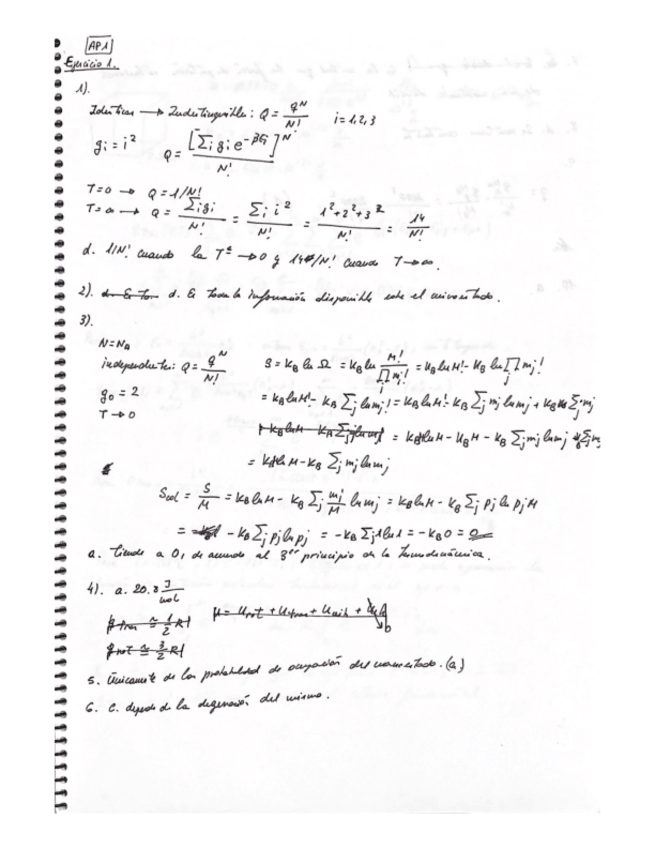 AP1
Ejercicio 1.
1).
Idénticas → Indistinguibles: Q = q^N / N!   i = 1,2,3
g_i = i^2   Q = [Σ_i g_i e^{-βε_i}]^N / N!
T=0 → Q = 1/N!
T=∞ → Q = Σ_i g_i / N! = Σ_i i^2 / N! = 1^2+2^2+3^2 / N! = 14 / N!
d. 1/N! cuando la Tª → 0 y 14^N/N! cuando T → ∞.
2). d. Es toda la información disponible sobre el microestado.
3).
N = N_A
independientes: Q = q^N / N!   S = k_B ln Ω = k_B ln M! / Π_j m_j! = k_B ln M! - k_B ln Π_j m_j!
g_0 = 2   = k_B ln M! - k_B Σ_j ln m_j! = k_B ln M! - k_B Σ_j m_j ln m_j + k_B Σ_j m_j
T → 0
= k_B M ln M - k_B M - k_B Σ_j m_j ln m_j + k_B Σ_j m_j
= k_B M ln M - k_B Σ_j m_j ln m_j
S_col = S/M = k_B ln M - k_B Σ_j m_j/M ln m_j = k_B ln M - k_B Σ_j p_j ln p_j M
= - k_B Σ_j p_j ln p_j = - k_B Σ_j 1 ln 1 = - k_B 0 = 0
a. Tiende a 0, de acuerdo al 3er principio de la Termodinámica.
4). a. 20.8 J/mol
5. Únicamente de las probabilidad de ocupación del nanoestado. (a)
6. c. depende de la degeneración del mismo.